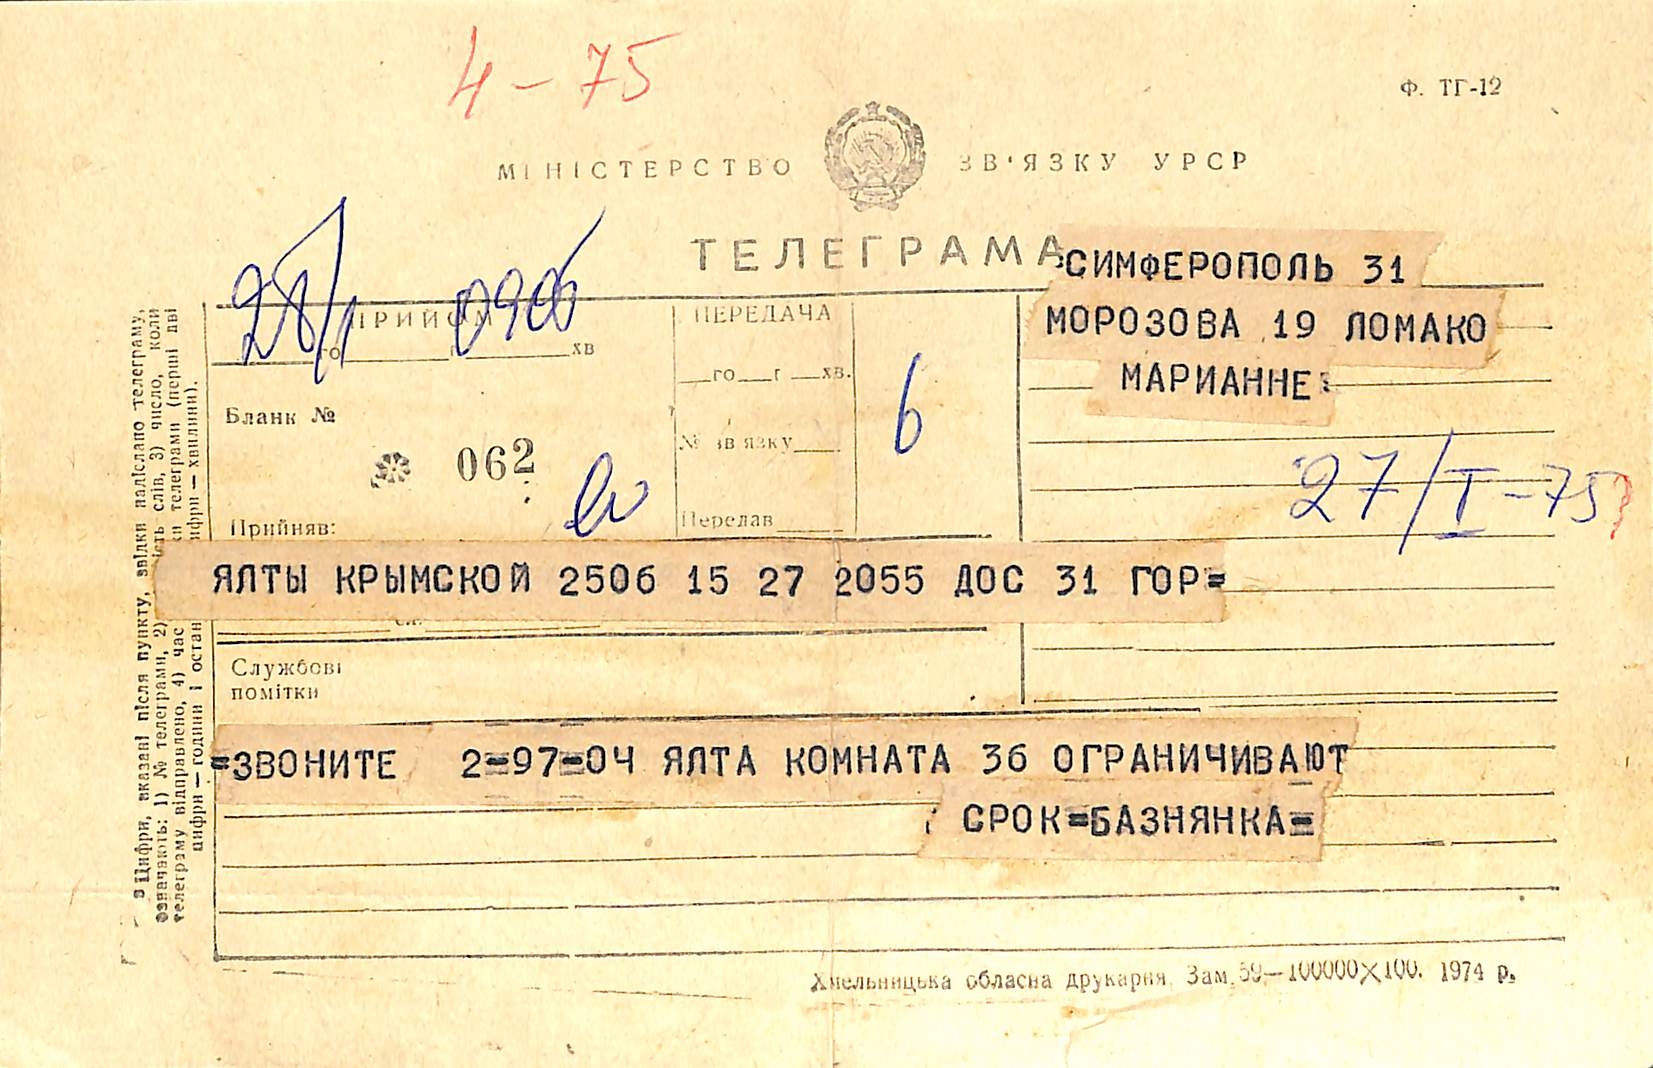 4-75
Ф. ТГ-12
МІНІСТЕРСТВО ЗВ'ЯЗКУ УРСР
ТЕЛЕГРАМА
СИМФЕРОПОЛЬ 31
МОРОЗОВА 19 ЛОМАКО
МАРИАННЕ
28/1 0906
ПРИЙОМ
го хв
ПЕРЕДАЧА
го г хв.
Бланк №
062
№ зв'язку
6
27/I-75
Прийняв:
Передав
ЯЛТЫ КРЫМСКОЙ 2506 15 27 2055 ДОС 31 ГОР=
Службові
помітки
=ЗВОНИТЕ 2=97=ОЧ ЯЛТА КОМНАТА 36 ОГРАНИЧИВАЮТ
СРОК=БАЗНЯНКА=
Цифри, вказані після пункту, звідки надіслано телеграму,
означають: 1) № телеграми, 2) слів, 3) число, коли
телеграму відправлено, 4) час телеграми (перші дві
цифри — години і остан цифри — хвилини).
Хмельницька обласна друкарня. Зам. 59—100000×100. 1974 р.